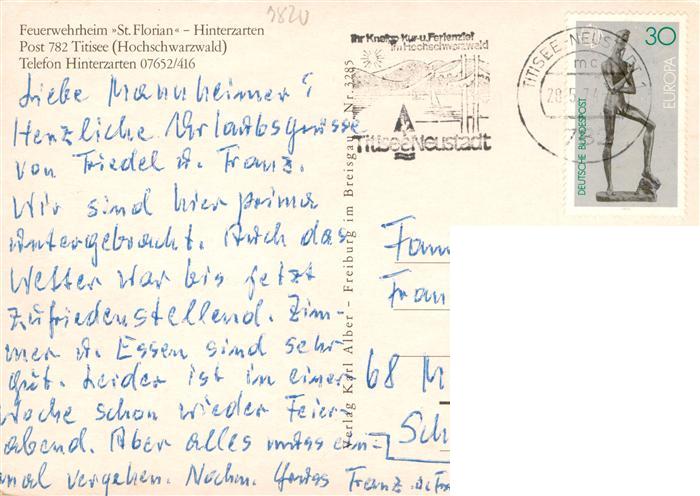 3820
Feuerwehrheim »St. Florian« – Hinterzarten
Post 782 Titisee (Hochschwarzwald)
Telefon Hinterzarten 07652/416
Liebe Mannheimer!
Herzliche Urlaubsgrüsse
von Friedel u. Franz.
Wir sind hier prima
untergebracht. Auch das
Wetter war bis jetzt
zufriedenstellend. Zim-
mer u. Essen sind sehr
gut. Leider ist in einer
Woche schon wieder Feier-
abend. Aber alles muss ein-
mal vergehen. Nochm. Gruss Franz u. Fr
Verlag Karl Alber – Freiburg im Breisgau Nr. 3285
Ihr Kneipp Kur-u. Ferienziel
im Hochschwarzwald
Titisee Neustadt
TITISEE-NEUSTADT 1
mc
28.5.74
782
30
EUROPA
DEUTSCHE BUNDESPOST
Fam
Fran
68 M
Sch